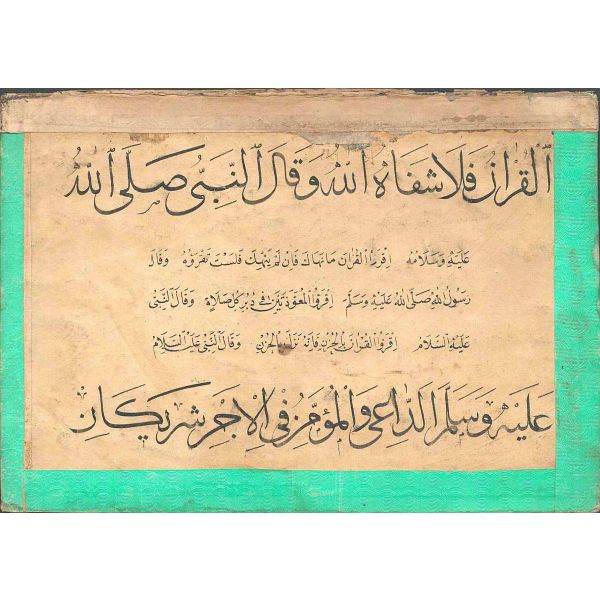 القرآن فلا شفاه الله وقال النبي صلى الله
عليه وسلامه اقرؤا القرآن ما نهاك فان لم ينهك فلست تقرؤه وقال
رسول الله صلى الله عليه وسلم اقرؤا المعوذتين في دبر كل صلاة وقال النبي
عليه السلام اقرؤا القرآن بالحزن فانه نزل بالحزن وقال النبي عليه السلام
عليه وسلم الداعي والمؤمن في الاجر شريكان